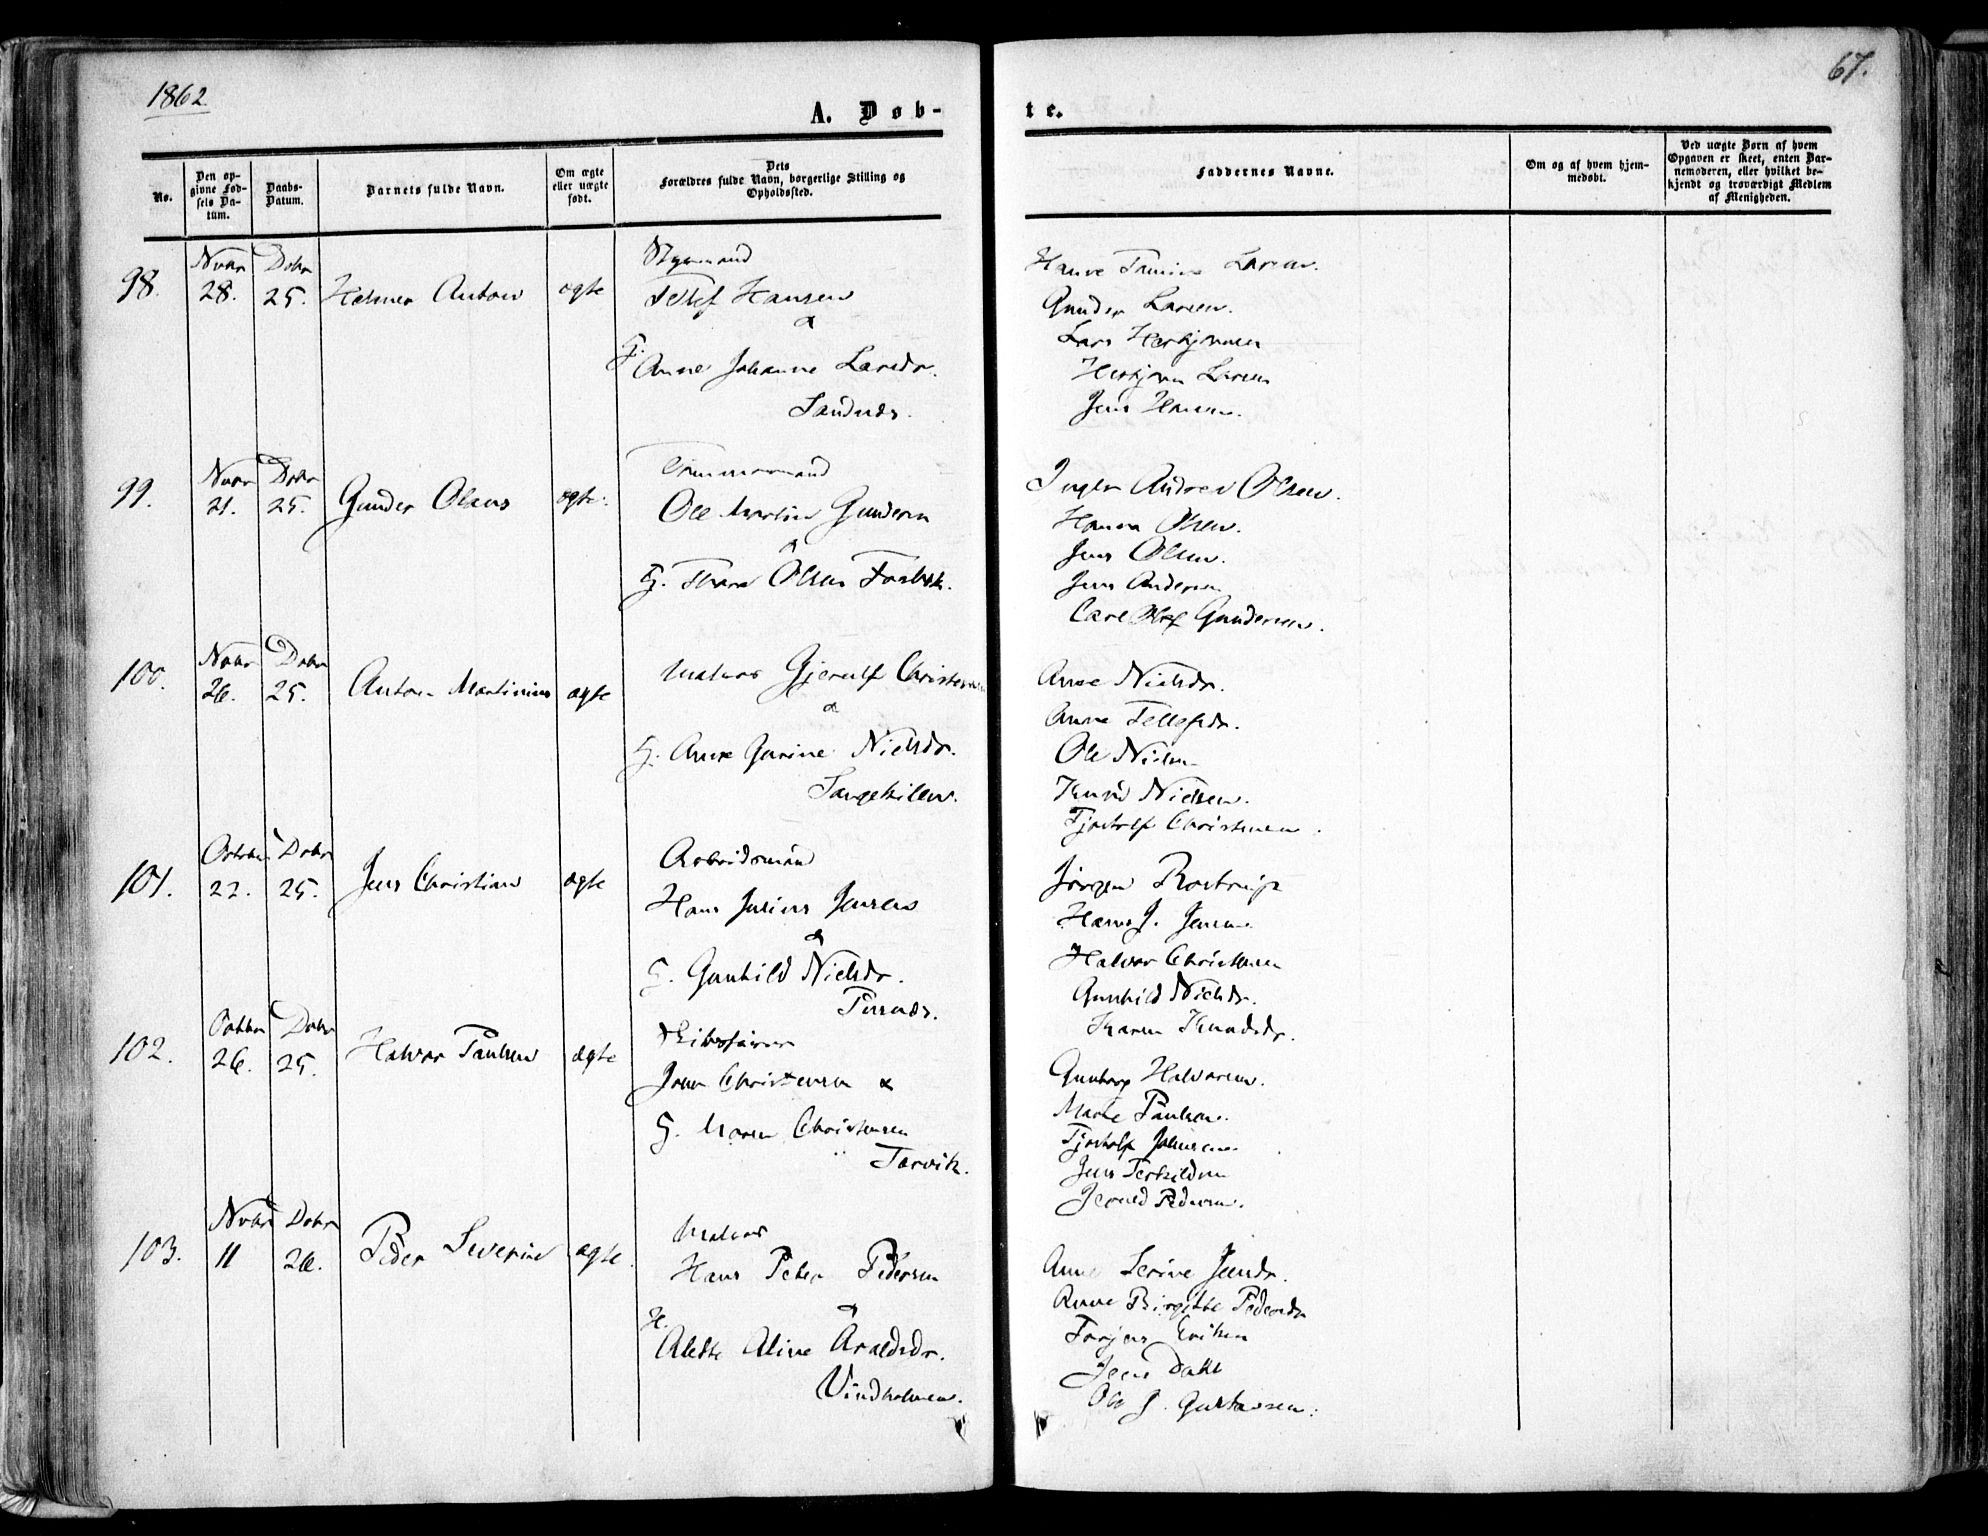 1862
67.
A. Døb-
te.
No.
Den op-
givne Fød-
sels Da-
tum.
Daabs-
Datum.
Barnets fulde Navn.
Om ægte
eller uægte
født.
Dets
Forældres fulde Navn, borgerlige Stilling og
Opholdssted.
Faddernes Navne.
Om og af hvem hjem-
medøbt.
Ved uægte Børn af hvem
Opgaven er skeet, enten Bar-
nemoderen, eller hvilket be-
kjendt og troværdigt Medlem
af Menigheden.
98. Novbr 28. Dcbr 25. Helmer Anton ægte
Styrmand
Tellef Hansen
&
G. Anne Johanne Larsdr.
Sandnæs.
Gunder Larsen.
Jens Hansen.
99. Novbr 21. Dcbr 25. Gunder Olaus ægte.
Tømmermand
Ole Martin Gundersen
&
G. Olsen
Andrea Olsen.
Hanna Olsen.
Jens Olsen.
Jens Andersen
Carl Olaf Gundersen.
100. Novbr 26. Dcbr 25. Anton Martinius ægte
Matros Gjerulf Christensen
&
G. Anne Gurine Nielsdr.
Anne Nielsdr.
Anne Tellefsdr.
Ole Nielsen
Knud Nielsen.
Fjostolf Christensen.
101. Octobr 22. Dcbr 25. Jens Christian ægte
Arbeidsmand
Hans Julius Jensen
&
G. Gunhild Nielsdr.
Jørgen Rostrup
Hans J. Jensen.
Halvor Christensen
Gunhild Nielsdr.
Karen Knudsdr.
102. Octbr 26. Dcbr 25. Halvor Paulsen ægte
Jens Christensen &
G. Maren Christensen
Torvik.
Gunborg Halvorsen.
Marte Paulsen.
Fjostolf Johnsen
Jens Terkildsen
Pedersen.
103. Novbr 11 Dcbr 26. Peder Severin ægte.
Matros
Hans Peter Pedersen
&
H. Alette Aline Araldsdr.
Vindholmen.
Anne Serine Jensdr.
Anne Birgitte Pedersdr
Torjus Eriksen
Jens Dahl
Ole J. Gustavsen.